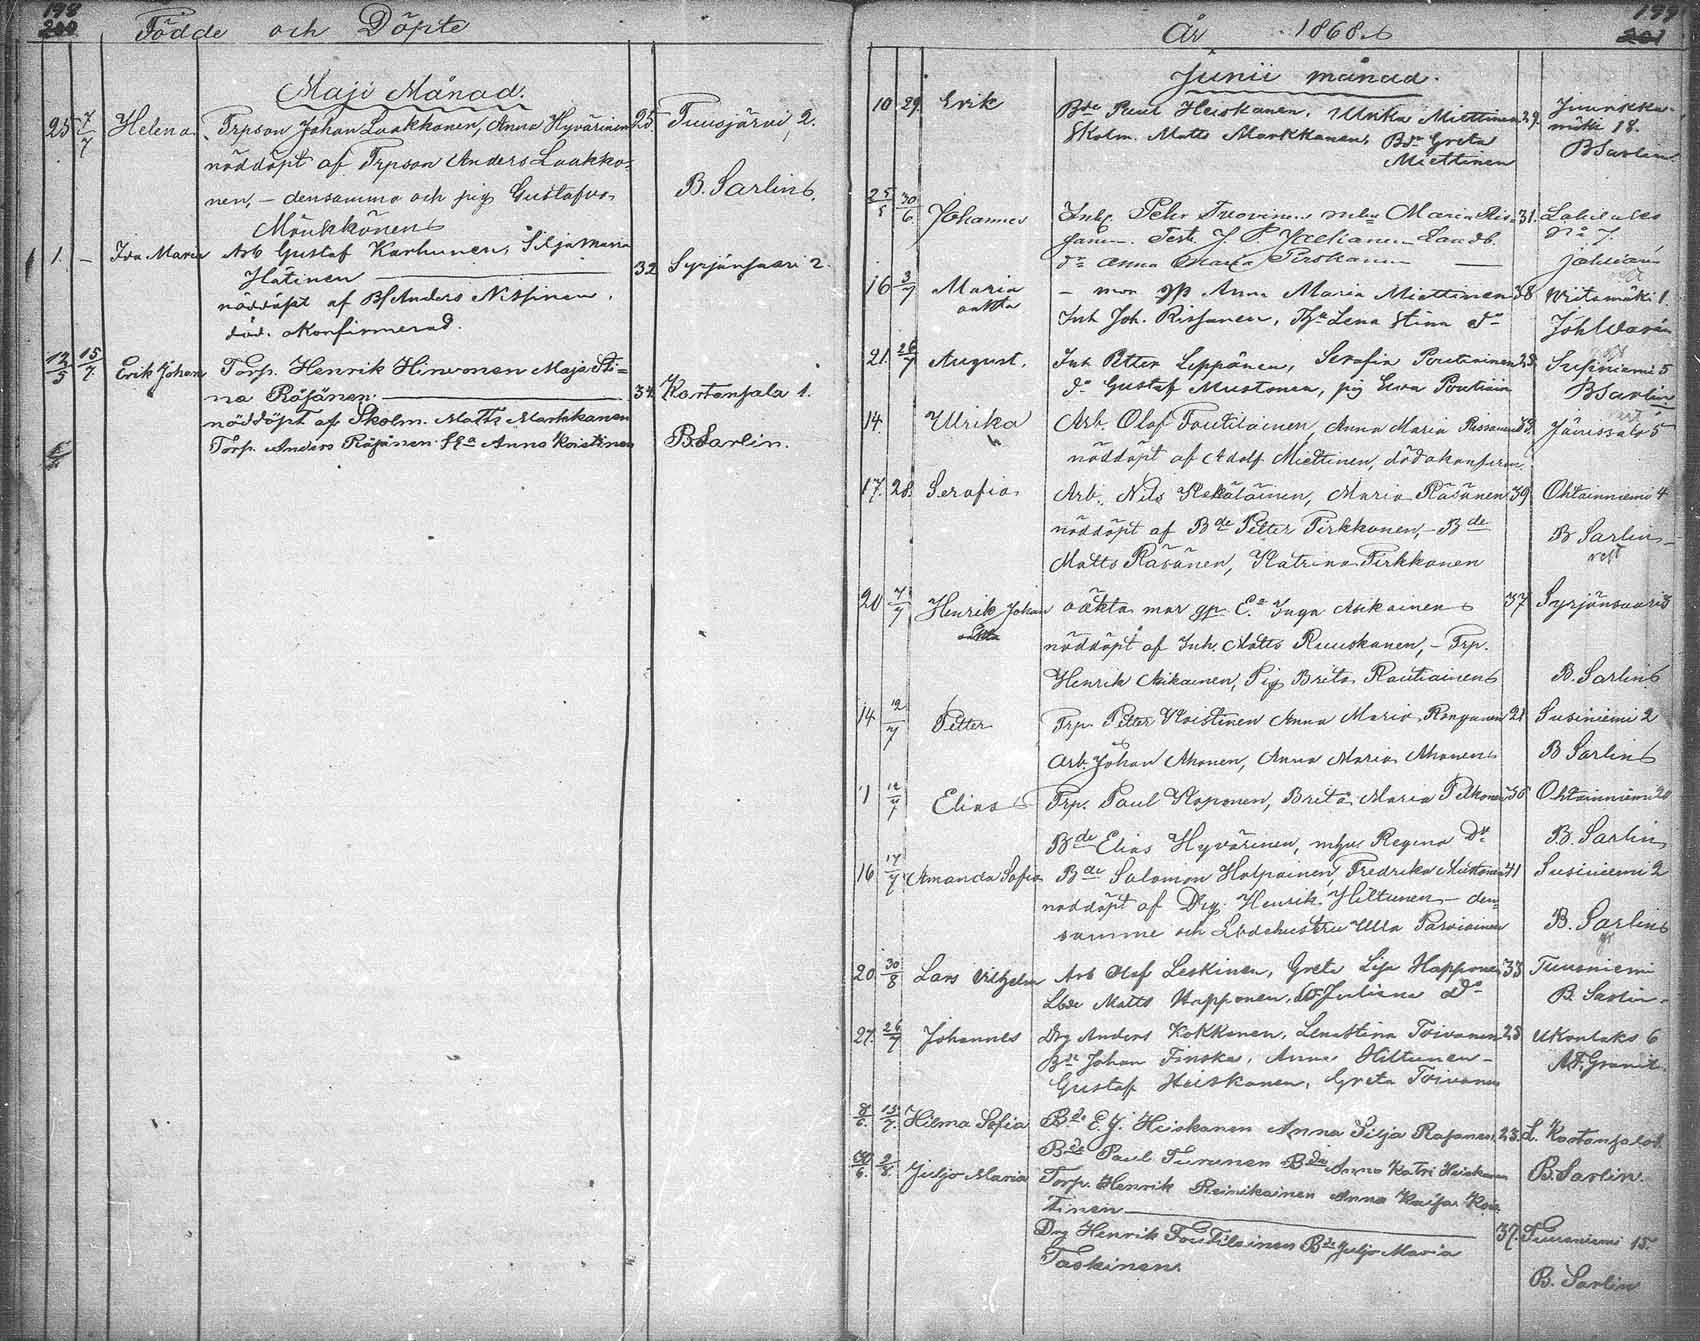 198
200
Födde och Döpte
Maji Månad.
25 7/7 Helena Trpson Johan Laakkonen, Anna Hyvärinen 25 Tuusjärvi 2.
nöddöpt af Trpson Anders Laakko-
nen, - densamma och pig Gustafva B. Sarlin
Mönkkönen
1. - Ida Maria Arb Gustaf Karhunen, Silja Maria
Hätinen 32 Syrjänsaari 2
nöddöpt af Anders Nissinen,
död. okonfirmerad.
12/5 15/7 Erik Johan Torp. Henrik Hirvonen Maja Sti=
na Räsänen 34 Kortensala 1.
nöddöpt af Skolm. Matts Markkanen
Torp. Anders Räsänen Anna Koistinen B Sarlin.
199
201
År 1868.
Junii månad.
10 29. Erik Bde Paul Heiskanen, Ulrika Miettinen 29. Juurikka-
Skolm. Matts Markkanen, Bdr Greta mäki 18.
Miettinen B Sarlin
25/5 30/6 Johannes Inh. Pehr Tuovinen Maria 31.
Test. J. P. No 7.
do Anna Maria
16 3/7 Maria - mor gp Anna Maria Miettinen 38 1
oäkta Inh Joh. Rissanen, Lena Stina do
21. 26/7 August. Inh Petter Leppänen, Serafia Poutiainen 23 Susiniemi 5
do Gustaf Mustonen, pig Poutiain B Sarlin
14. Ulrika Arb. Olof Toutilainen, Anna Maria Rissanen Jänissalo 5
nöddöpt af Adolf Miettinen, död okonfirm.
17. 28. Serafia Arb. Nils Kekäläinen, Maria Räsänen 39 Ohtainniemi 4
nöddöpt af Bde Petter Pirkkonen, - Bde B Sarlin
Matts Räsänen, Katrina Pirkkonen
20 7/7 Henrik Johan oäkta mor gp. Inga Asikainen 37 Syrjänsaari 3
oäkta nöddöpt af Inh. Matts Ruuskanen, - Trp.
Henrik Asikainen, Pig Brita Rautiainen B. Sarlin
14 12/7 Petter Trp. Petter Koistinen Anna Maria Ronganen 21 Susiniemi 2
Arb. Johan Ahonen, Anna Maria Ahonen B Sarlin
1 12/7 Elias Trp. Paul Koponen, Brita Maria Pelkonen 36 Ohtainniemi 20
Bde Elias Hyvärinen, mhus Regina Do B. Sarlin
16 17/7 Amanda Sofia Bde Salomon Holpainen, Fredrika Miettinen 41 Susiniemi 2
nöddöpt af Drg. Henrik Hiltunen - den
samme och Lbdehustru Ulla Parviainen B. Sarlin
20 30/8 Lars Vilhelm Arb Olof Leskinen, Greta Lisa Happonen 33 Tuusniemi
Lbde Matts Happonen, Juliana do B. Sarlin
27. 26/7 Johannes Drg Anders Kokkonen, Lena Stina Toivanen 28 Ukonlaks 6
Bde Johan Finska, Anna Hiltunen - A.F. Granit
Gustaf Heiskanen, Greta Toivanen
8/6. 15/7. Hilma Sofia Bde E. J. Heiskanen Anna Silja Räsänen 23. L. Kortensalo 1.
Bde Paul Turunen Bda Anna Katri Heiskanen
30/6. 2/8. Juljo Maria Torp. Henrik Reinikainen Anna Kaisa Kois- B. Sarlin.
tinen
Drg Henrik Toutilainen Bde Juljo Maria 37. Tuusniemi 15.
Taskinen.
B. Sarlin